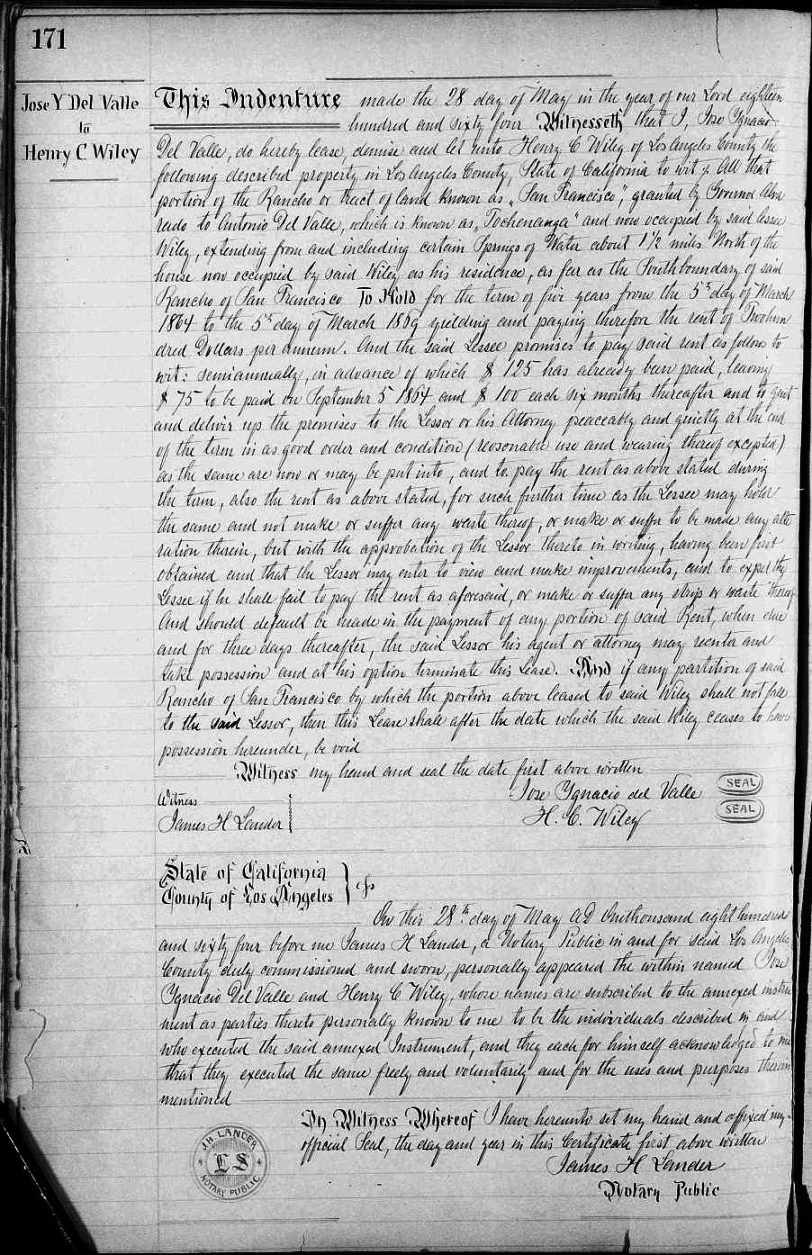 171
Jose Y Del Valle
to
Henry C Wiley
This Indenture made the 28 day of May in the year of our Lord eighteen
hundred and sixty four Witnesseth that I, Jose Ygnacio
Del Valle, do hereby lease, demise and let unto Henry C Wiley of Los Angeles County the
following described property in Los Angeles County, State of California to wit: All that
portion of the Rancho or tract of land known as "San Francisco", granted by Governor Alva
rado to Antonio Del Valle, which is known as "Tochenanga" and now occupied by said lessee
Wiley, extending from and including certain Springs of Water about 1½ miles North of the
house now occupied by said Wiley as his residence, as far as the South boundary of said
Rancho of San Francisco To Hold for the term of five years from the 5th day of March
1864 to the 5th day of March 1869 yeilding and paying therefor the rent of Two hun
dred Dollars per annum. And the said Lessee promises to pay said rent as follows to
wit: semiannually, in advance of which $125 has already been paid, leaving
$75 to be paid on September 5 1864 and $100 each six months thereafter and to quit
and deliver up the premises to the Lessor or his Attorney peaceably and quietly at the end
of the term in as good order and condition (reasonable use and wearing thereof excepted)
as the same are now or may be put into, and to pay the rent as above stated during
the term, also the rent as above stated, for such further time as the Lessee may hold
the same and not make or suffer any waste thereof, or make or suffer to be made any alte
ration therein, but with the approbation of the Lessor thereto in writing, having been first
obtained and that the Lessor may enter to view and make improvements, and to expel the
Lessee if he shall fail to pay the rent as aforesaid, or make or suffer any strip or waste thereof
And should default be made in the payment of any portion of said Rent, when due
and for three days thereafter, the said Lessor his agent or attorney may reenter and
take possession and at his option terminate this Lease. And if any partition of said
Rancho of San Francisco by which the portion above leased to said Wiley shall not fall
to the said Lessor, then this Lease shall after the date which the said Wiley ceases to have
possession hereunder, be void
Witness my hand and seal the date first above written
Witness
Jose Ygnacio del Valle SEAL
James H Lander
H. C. Wiley SEAL
State of California
County of Los Angeles
On this 28th day of May AD Onethousand eight hundred
and sixty four before me James H Lander, a Notary Public in and for said Los Angeles
County duly commissioned and sworn, personally appeared the within named Jose
Ygnacio Del Valle and Henry C Wiley, whose names are subscribed to the annexed instru
ment as parties thereto personally known to me to be the individuals described in and
who executed the said annexed Instrument, and they each for himself acknowledged to me
that they executed the same freely and voluntarily and for the uses and purposes therein
mentioned
In Witness Whereof I have hereunto set my hand and affixed my
official Seal, the day and year in this Certificate first above written
James H Lander
Notary Public
J.H. LANDER
LS
NOTARY PUBLIC